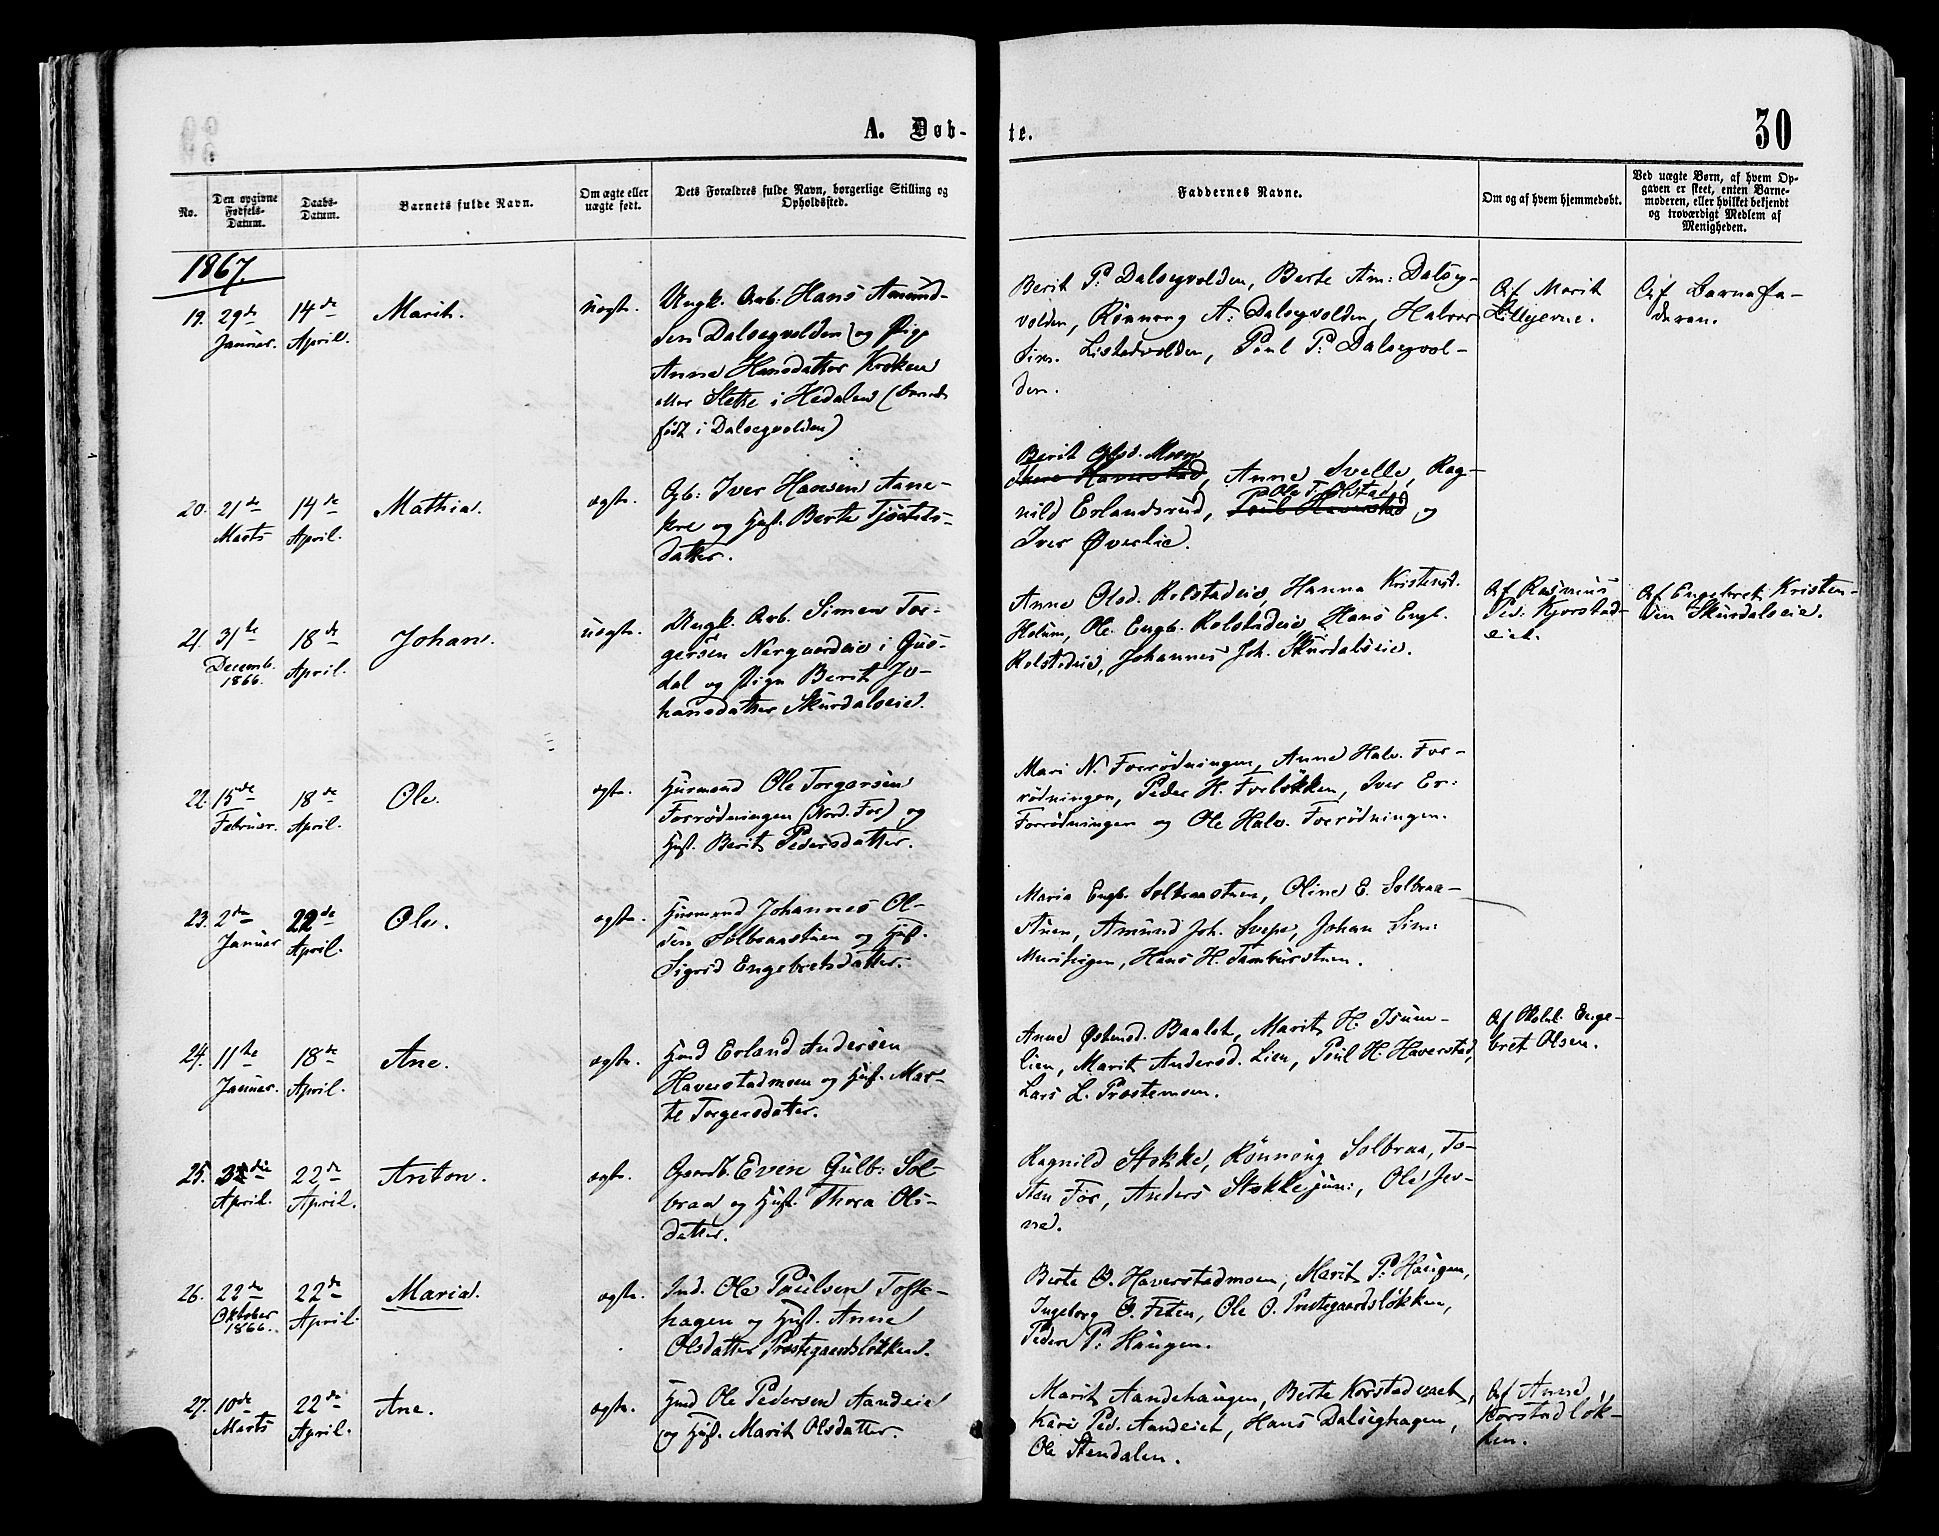 A. Døb-
te.
30
No.
Den opgivne
Fødsels-
Datum.
Daabs-
Datum.
Barnets fulde Navn.
Om ægte eller
uægte født.
Dets Forældres fulde Navn, borgerlige Stilling og
Opholdssted.
Faddernes Navne.
Om og af hvem hjemmedøbt.
Ved uægte Børn, af hvem Op-
gaven er skeet, enten Barne-
moderen, eller hvilket bekjendt
og troværdigt Medlem af
Menigheden.
1867.
19. 29de
Januar.
14de
April.
Marit.
uægte.
Ungk. Arb: Hans Amund-
sen Dalsegvolden (og Pige
Anna Hansdatter Kroken
eller Slette i Hedalen (barnet
født i Dalsegvolden)
Berit P: Dalsegvolden, Berte Am: Dalseg-
volden, Rønnong A: Dalsegvolden, Halvor
Sim. Listadvolden, Poul P: Dalsegvol-
den.
Af Marit
Lillejevne.
Af Barnefa-
deren.
20. 21de
Marts
14de
April.
Mathia.
ægte.
Gb: Iver Hansen Aane-
kre og Hust. Berte Tjøstels-
datter.
Berit Olsd. Moen
Haverstad, Anne Svelle, Rag-
nild Erlandsrud, Poul Haverstad og
Ole T. Olstad,
Iver Øverlie.
21. 31te
Decemb.
1866.
18de
April.
Johan.
uægte.
Ungk. Arb. Simen Tor-
gersen Nergaardeie i Gus-
dal og Pige Berit Jo-
hansdatter Skurdalseie.
Anne Olsd. Rolstadeie, Hanna Kristensd.
Holum, Ole Engb. Rolstadeie, Hans Engb.
Rolstadeie, Johannes Joh. Skurdalseie.
Af Rasmus
Ped. Kjorstad-
eiet.
Af Engebret Kristen-
sen Skurdalseie.
22. 15de
Februar.
18de
April.
Ole.
ægte.
Husmand Ole Torgersen
Forrødningen (Nord. For) og
Hust. Berit Pedersdatter.
Mari N. Forrødningen, Anne Halv. For-
rødningen, Peder H. Forløkken, Iver Er:
Forrødningen og Ole Halv. Forrødningen.
23. 2den
Januar
22de
April.
Ole.
ægte.
Husmand Johannes Ol-
sen Solbraastuen og Hust.
Sigrid Engebretsdatter.
Maria Engb. Solbraastuen, Oline E. Solbraa-
stuen, Amund Joh. Svepe, Johan Sim:
Muritrigen, Hans H. Tamburstuen.
24. 11te
Januar.
18de
April.
Ane.
ægte.
Hmd Erland Andersen
Haverstadmoen og Hust. Mar-
te Torgersdatter.
Anne Østensd. Baalet, Marit H. Isum-
lien, Marit Andersd. Lien, Poul H. Haverstad,
Lars L. Prostemoen.
Af Skolel. Enge-
bret Olsen.
25. 3die
April.
22de
April.
Anton.
ægte.
Gaardb. Even Gulb: Sol-
braa og Hust. Thora Ols-
datter.
Ragnild Stokke, Rønnong Solbraa, To-
sten For, Anders Stokke jun:, Ole Jev-
ne.
26. 22de
Oktober
1866.
22de
April.
Maria.
ægte.
Ind. Ole Paulsen Tofte-
hagen og Hust. Anne
Olsdatter Prestegaardsløkken.
Berte O. Haverstadmoen, Marit P: Haugen,
Ingeborg O. Feten, Ole O. Prestegaardsløkken,
Peder P: Haugen.
27. 10de
Marts
22de
April.
Ane.
ægte.
Hmd Ole Pedersen Aandeie
og Hust. Marit Olsdatter.
Marit Aandehaugen, Berte Korstadvaet,
Kari Ped. Aandeiet, Hans Dalseghagen,
Ole Stendalen.
Af Anne
Korstadløk-
ken.